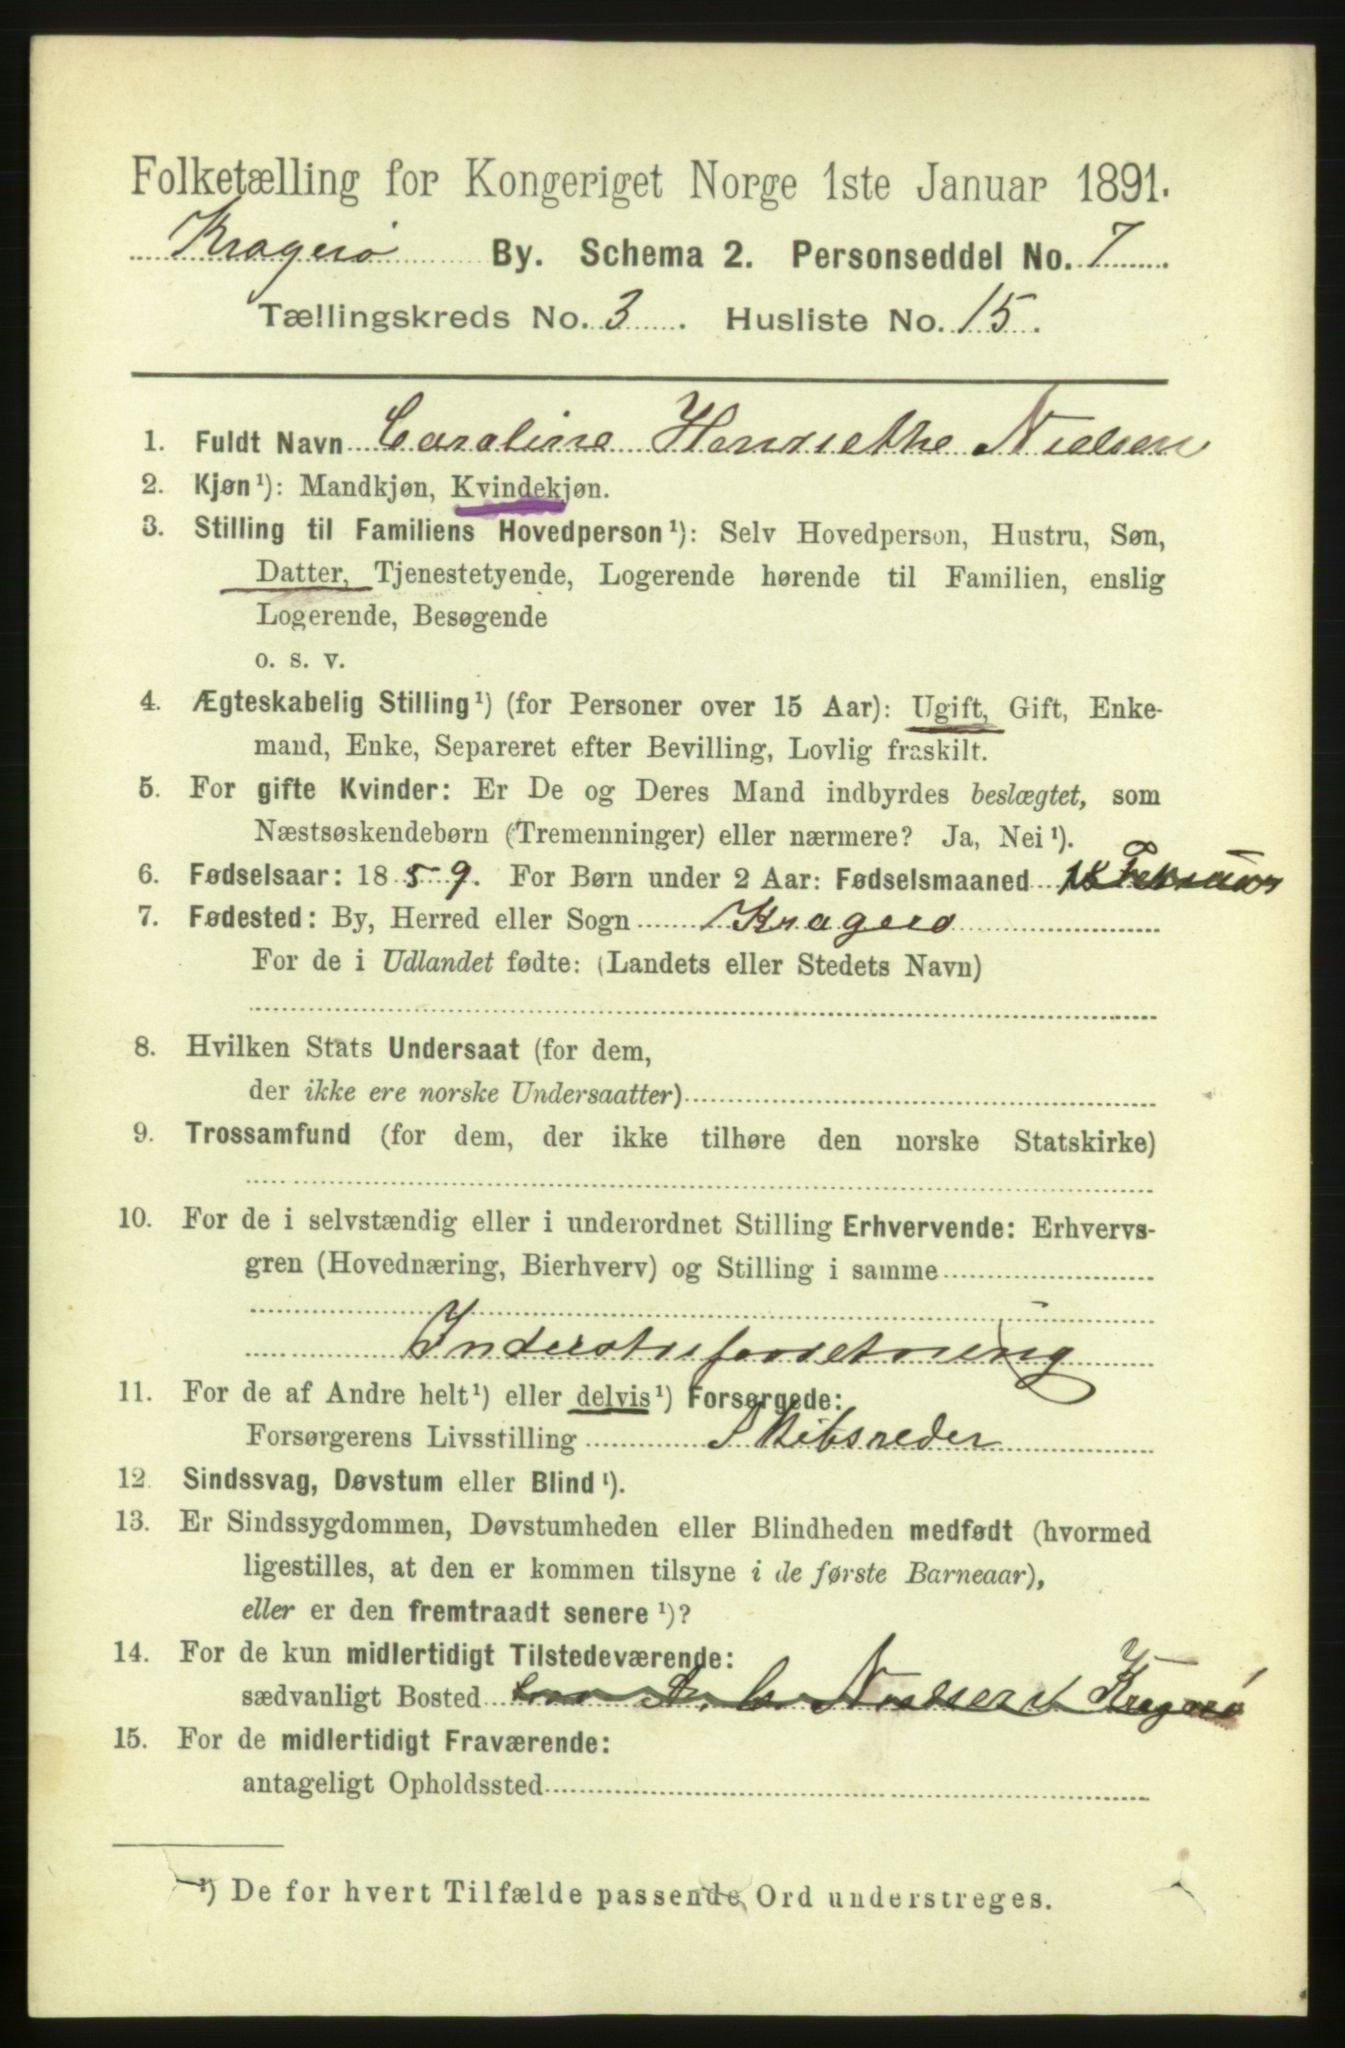 Folketælling for Kongeriget Norge 1ste Januar 1891.
Kragerø By. Schema 2. Personseddel No. 7
Tællingskreds No. 3. Husliste No. 15.
1. Fuldt Navn Caroline Henriethe Nielsen
2. Kjøn¹): Mandkjøn, Kvindekjøn.
3. Stilling til Familiens Hovedperson¹): Selv Hovedperson, Hustru, Søn,
Datter, Tjenestetyende, Logerende hørende til Familien, enslig
Logerende, Besøgende
o. s. v.
4. Ægteskabelig Stilling¹) (for Personer over 15 Aar): Ugift, Gift, Enke-
mand, Enke, Separeret efter Bevilling, Lovlig fraskilt.
5. For gifte Kvinder: Er De og Deres Mand indbyrdes beslægtet, som
Næstsøskendebørn (Tremenninger) eller nærmere? Ja, Nei¹).
6. Fødselsaar: 1859. For Børn under 2 Aar: Fødselsmaaned 18 Februar
7. Fødested: By, Herred eller Sogn Kragerø
For de i Udlandet fødte: (Landets eller Stedets Navn)
8. Hvilken Stats Undersaat (for dem,
der ikke ere norske Undersaatter)
9. Trossamfund (for dem, der ikke tilhøre den norske Statskirke)
10. For de i selvstændig eller i underordnet Stilling Erhvervende: Erhvervs-
gren (Hovednæring, Bierhverv) og Stilling i samme
11. For de af Andre helt¹) eller delvis¹) Forsørgede:
Forsørgerens Livsstilling Skibsreder
12. Sindssvag, Døvstum eller Blind¹).
13. Er Sindssygdommen, Døvstumheden eller Blindheden medfødt (hvormed
ligestilles, at den er kommen tilsyne i de første Barneaar),
eller er den fremtraadt senere¹)?
14. For de kun midlertidigt Tilstedeværende:
sædvanligt Bosted A. C. Nielsen Kragerø
15. For de midlertidigt Fraværende:
antageligt Opholdssted
¹) De for hvert Tilfælde passende Ord understreges.